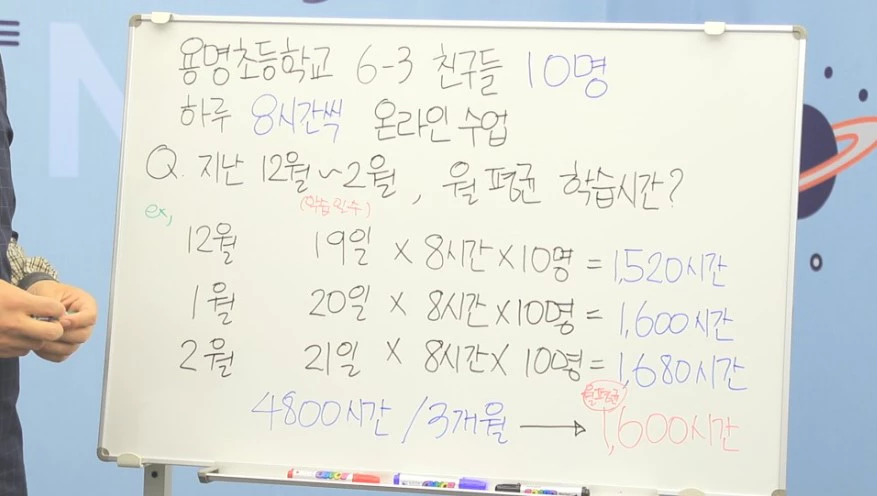 용명초등학교 6-3 친구들 10명
하루 8시간씩 온라인 수업
Q. 지난 12월~2월, 월 평균 학습시간?
ex,
(학습일수)
12월 19일 × 8시간 × 10명 = 1,520시간
1월 20일 × 8시간 × 10명 = 1,600시간
2월 21일 × 8시간 × 10명 = 1,680시간
월평균
4800시간 / 3개월 → 1,600시간
N